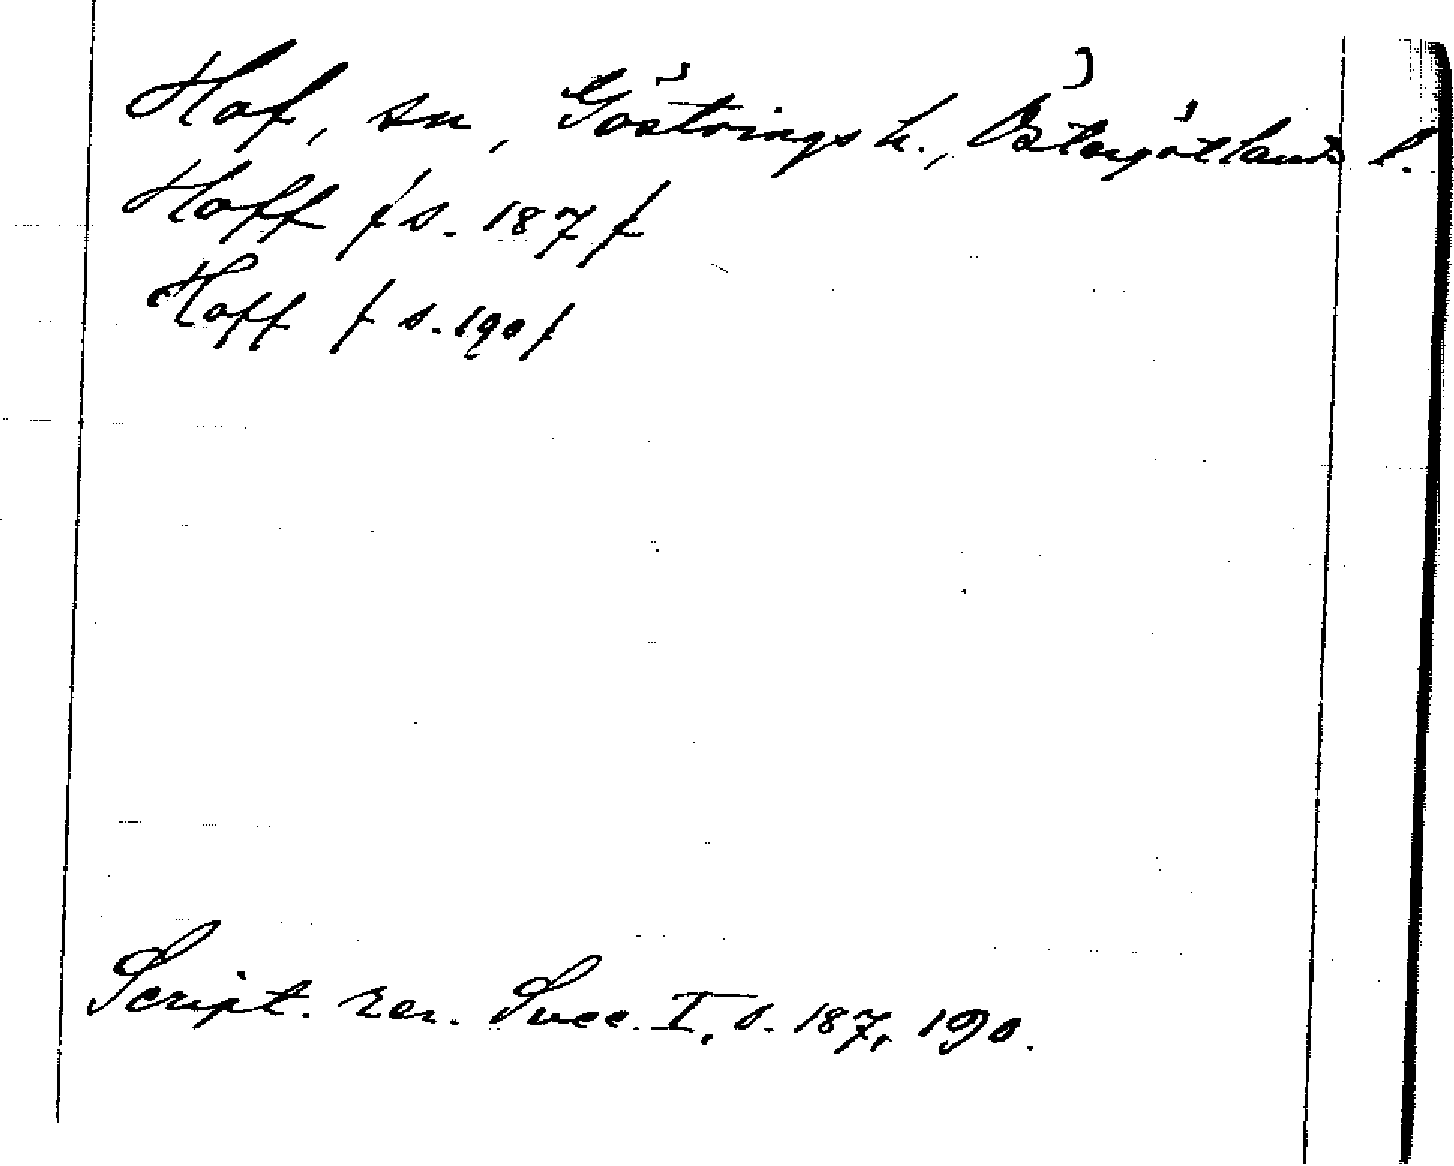 Hof, sn, Göstrings h., Östergötlands l.
Hoff /s. 187/
Hoff /s. 190/
Script. rer. Svec. I, s. 187, 190.